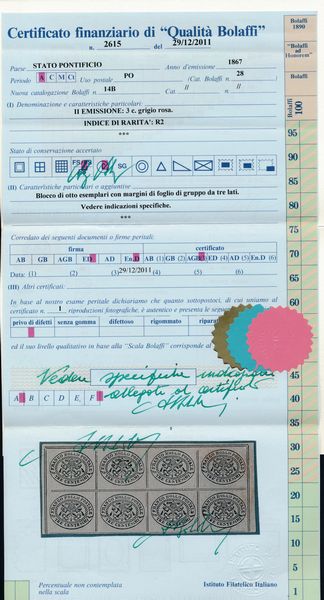 Certificato finanziario di “Qualità Bolaffi”
n. 2615 del 29/12/2011
Bolaffi 1890
Bolaffi "ad Honorem"
Bolaffi
Paese STATO PONTIFICIO Anno d'emissione 1867
Periodo A C M Ct Uso postale PO (Cat. Bolaffi n. 28 )
Nuova catalogazione Bolaffi n. 14B ( II II )
(I) Denominazione e caratteristiche particolari:
II EMISSIONE: 3 c. grigio rosa.
INDICE DI RARITA': R2
***
Stato di conservazione accertato
SG
(II) Caratteristiche particolari e aggiuntive:
Blocco di otto esemplari con margini di foglio di gruppo da tre lati.
Vedere indicazioni specifiche.
***
Corredato dei seguenti documenti o firme peritali:
firma certificato
AB GB AGB ED En.D AB (1) GB (2) AGB (3) ED (4) AD (5) En.D (6)
Data: (1) (2) (3) 29/12/2011 (4) (5) (6)
(III) Altri certificati:
In base al nostro esame peritale dichiariamo che quanto sottopostoci, di cui uniamo al
certificato n. 1 riproduzioni fotografiche, è autentico e presenta le seguenti
privo di difetti senza gomma difettoso rigommato riparato
ed il suo livello qualitativo in base alla "Scala Bolaffi" corrisponde al
Vedere specifiche indicazioni
allegate al certificato
A B C D E F
100
95
90
85
80
75
70
65
60
55
50
45
40
35
30
25
20
15
10
5
1
FRANCO BOLLO POSTALE
TRE CENTESIMI
Percentuale non contemplata
nella scala
Istituto Filatelico Italiano